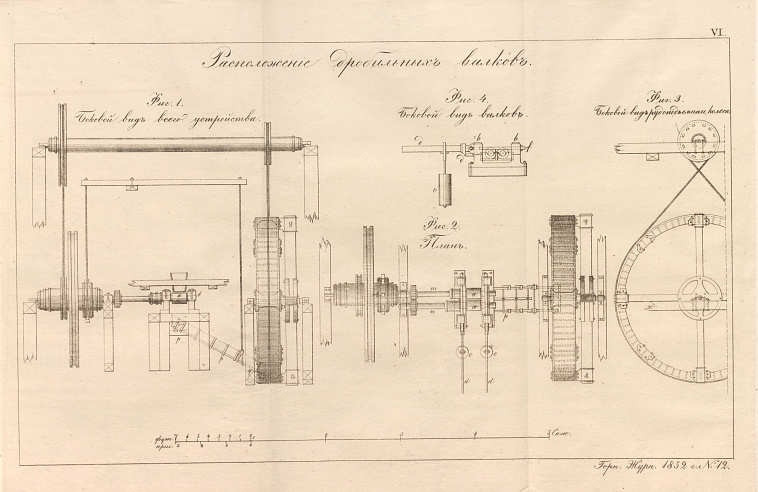 VI.
Расположеніе дробильныхъ валковъ.
Фиг. 1.
Боковой видъ всего устройства.
Фиг. 4.
Боковой видъ валковъ.
Фиг. 3.
Боковой видъ рудоподъемнаго колеса
Фиг. 2.
Планъ.
Саж.
Горн. Журн. 1832 г. N. 12.